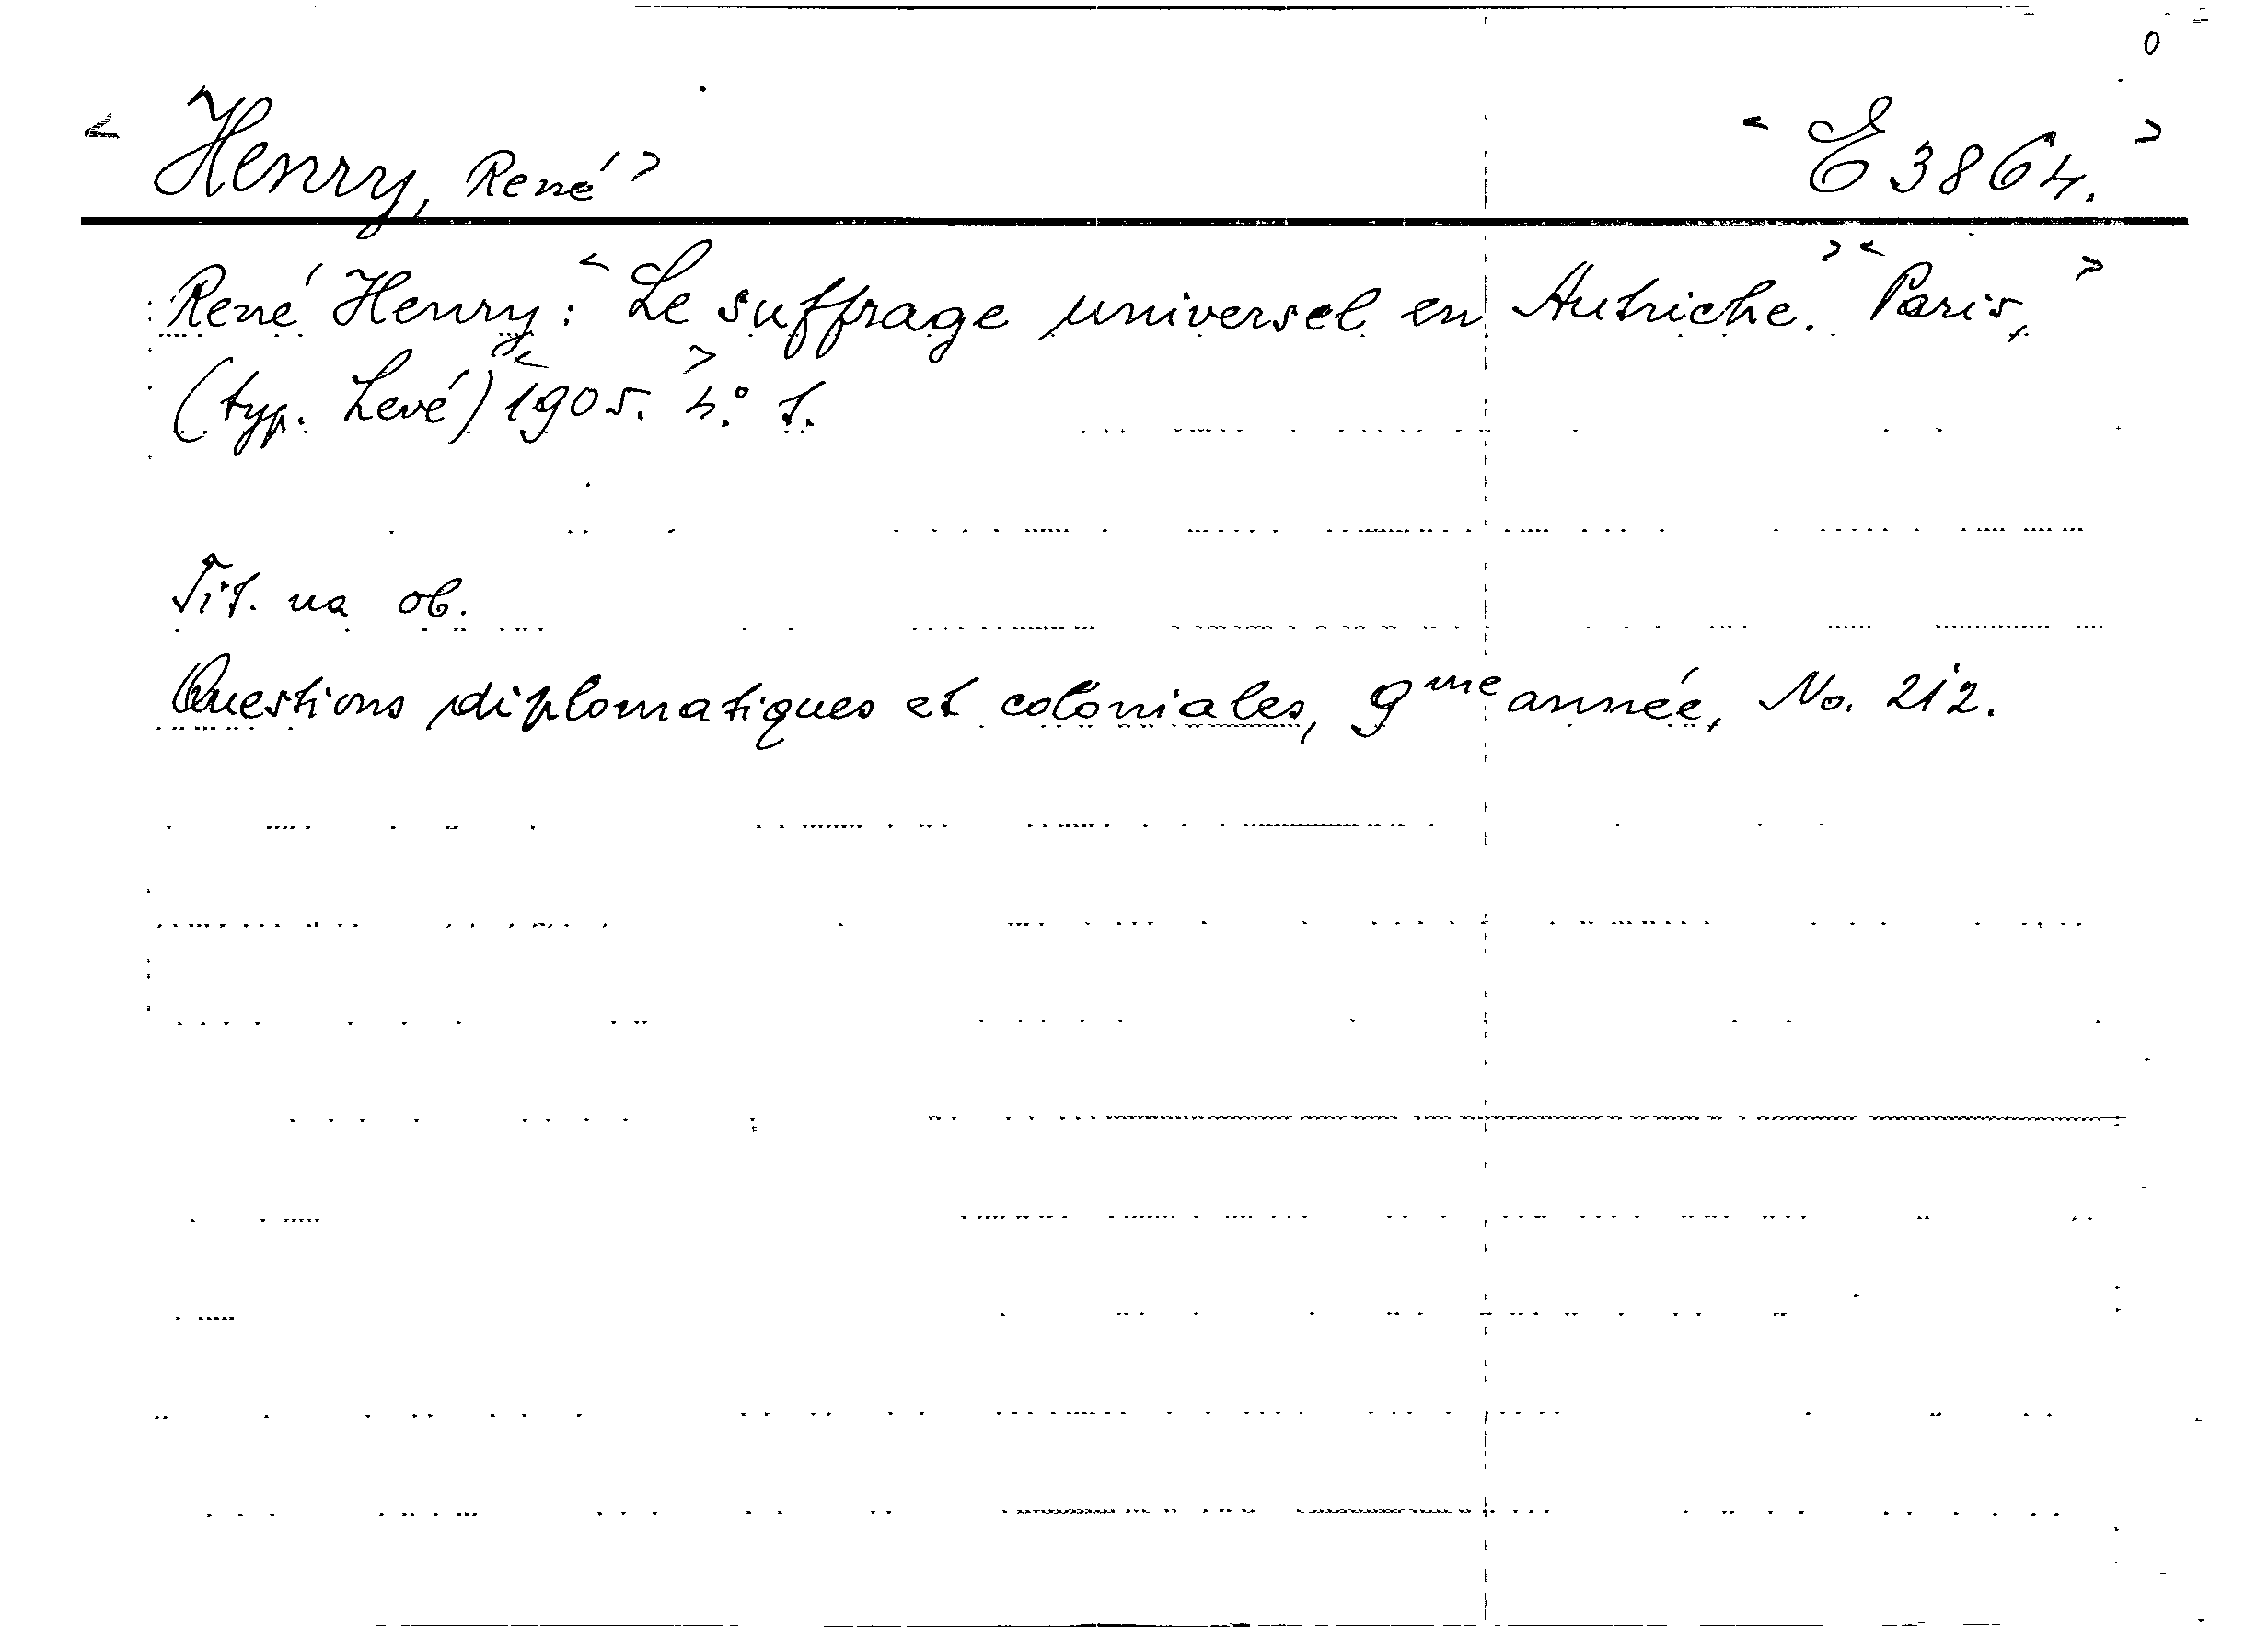 0
< Henry, René > < E 3864. >
René Henry: < Le suffrage universel en Autriche. > < Paris, >
(typ. Levé) < 1905. > 4.°
Tit. na ob.
Questions diplomatiques et coloniales, 9me année, No. 212.